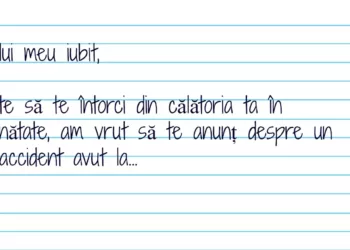 lui meu iubit,
te să te întorci din călătoria ta în
nătate, am vrut să te anunț despre un
accident avut la...